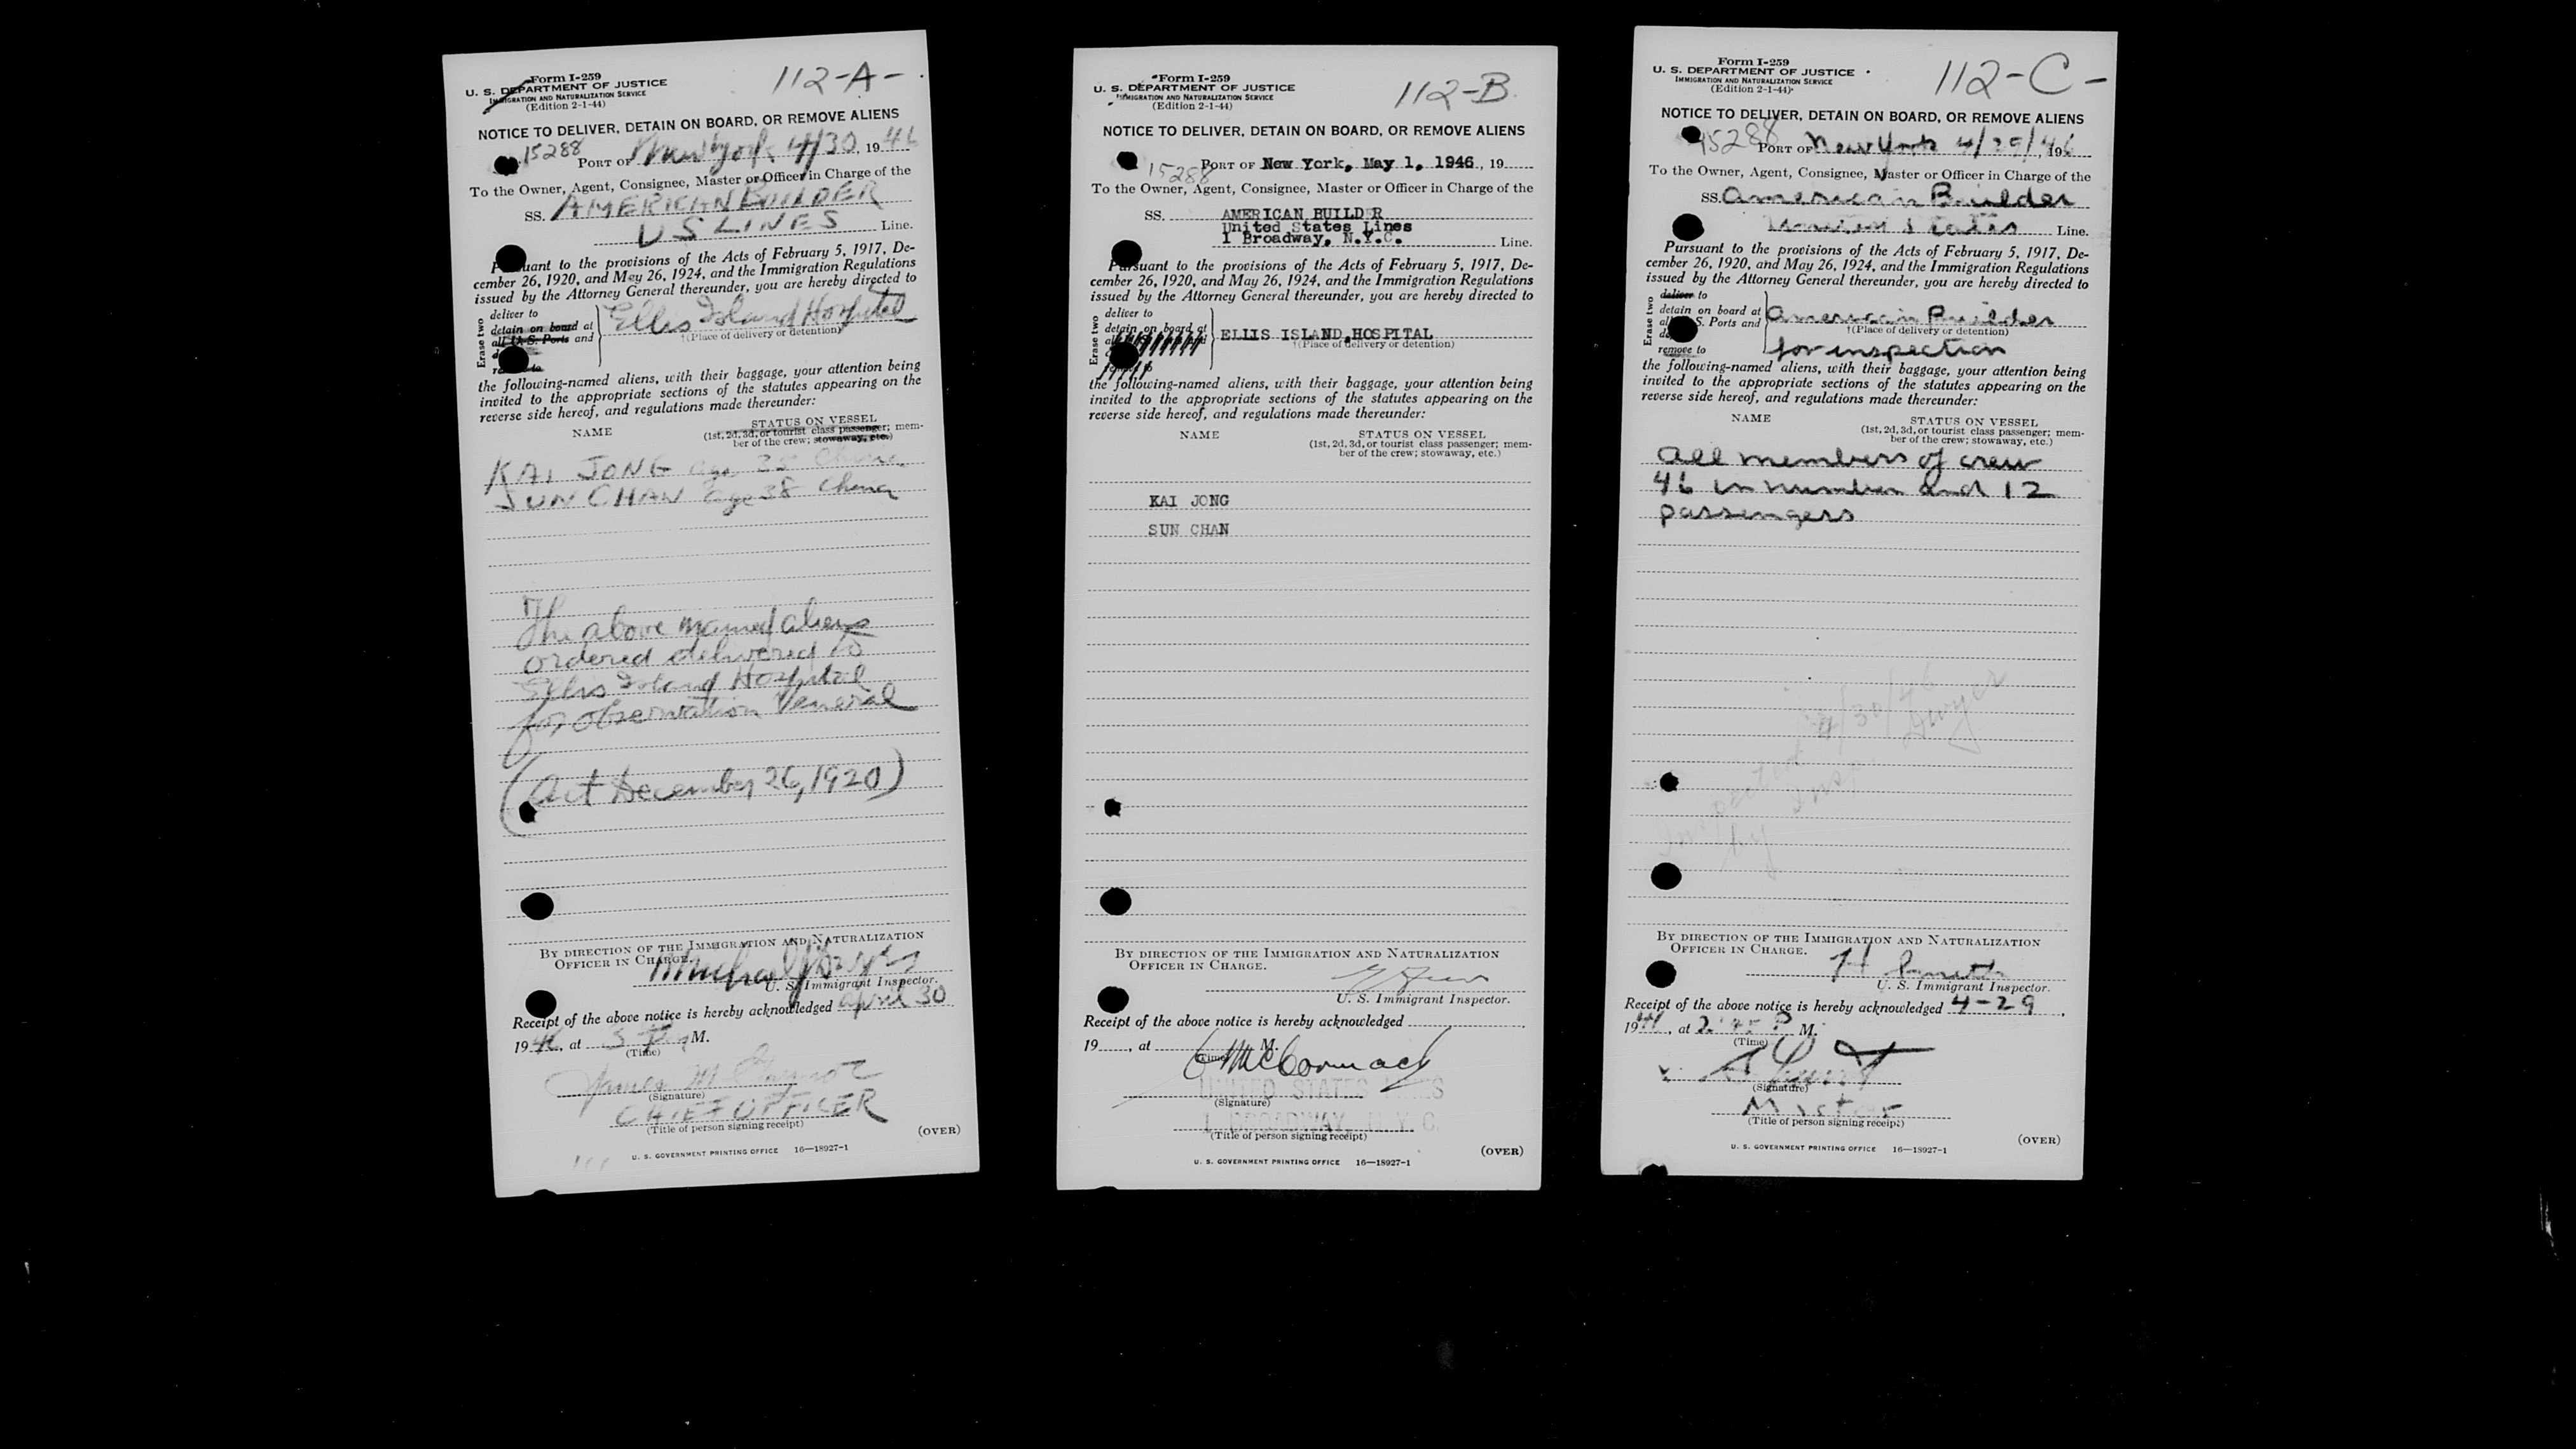 Form I-259
U. S. DEPARTMENT OF JUSTICE
IMMIGRATION AND NATURALIZATION SERVICE
(Edition 2-1-44)
112-A-
NOTICE TO DELIVER, DETAIN ON BOARD, OR REMOVE ALIENS
15288
PORT OF New York, 4/30, 1946
To the Owner, Agent, Consignee, Master or Officer in Charge of the
SS. AMERICAN BUILDER
US LINES Line.
Pursuant to the provisions of the Acts of February 5, 1917, De-
cember 26, 1920, and May 26, 1924, and the Immigration Regulations
issued by the Attorney General thereunder, you are hereby directed to
Erase two
deliver to
detain on board at
all U. S. Ports and
Ellis Island Hospital
†(Place of delivery or detention)
the following-named aliens, with their baggage, your attention being
invited to the appropriate sections of the statutes appearing on the
reverse side hereof, and regulations made thereunder:
NAME
STATUS ON VESSEL
(1st, 2d, 3d, or tourist class passenger; mem-
ber of the crew; stowaway, etc.)
KAI JONG age 35 China
SUN CHAN age 38 China
The above named aliens
ordered delivered to
Ellis Island Hospital
for observation Veneral
(Act December 26, 1920)
BY DIRECTION OF THE IMMIGRATION AND NATURALIZATION
OFFICER IN CHARGE.
U. S. Immigrant Inspector.
Receipt of the above notice is hereby acknowledged April 30
1946, at 3 P. M.
(Time)
James M
(Signature)
CHIEF OFFICER
(Title of person signing receipt)
(OVER)
U. S. GOVERNMENT PRINTING OFFICE 16—18927-1
Form I-259
U. S. DEPARTMENT OF JUSTICE
IMMIGRATION AND NATURALIZATION SERVICE
(Edition 2-1-44)
112-B
NOTICE TO DELIVER, DETAIN ON BOARD, OR REMOVE ALIENS
15288
PORT OF New York, May 1, 1946, 19
To the Owner, Agent, Consignee, Master or Officer in Charge of the
SS. AMERICAN BUILD R
United States Lines
1 Broadway, N.Y.C. Line.
Pursuant to the provisions of the Acts of February 5, 1917, De-
cember 26, 1920, and May 26, 1924, and the Immigration Regulations
issued by the Attorney General thereunder, you are hereby directed to
Erase two
deliver to
detain on board at
ELLIS ISLAND HOSPITAL
†(Place of delivery or detention)
the following-named aliens, with their baggage, your attention being
invited to the appropriate sections of the statutes appearing on the
reverse side hereof, and regulations made thereunder:
NAME
STATUS ON VESSEL
(1st, 2d, 3d, or tourist class passenger; mem-
ber of the crew; stowaway, etc.)
KAI JONG
SUN CHAN
BY DIRECTION OF THE IMMIGRATION AND NATURALIZATION
OFFICER IN CHARGE.
U. S. Immigrant Inspector.
Receipt of the above notice is hereby acknowledged
19, at M.
(Time)
McCormack
UNITED STATES LINES
(Signature)
1 BROADWAY, N.Y.C.
(Title of person signing receipt)
(OVER)
U. S. GOVERNMENT PRINTING OFFICE 16—18927-1
Form I-259
U. S. DEPARTMENT OF JUSTICE
IMMIGRATION AND NATURALIZATION SERVICE
(Edition 2-1-44)
112-C-
NOTICE TO DELIVER, DETAIN ON BOARD, OR REMOVE ALIENS
15288
PORT OF New York 4/29/46
To the Owner, Agent, Consignee, Master or Officer in Charge of the
SS. American Builder
United States Line.
Pursuant to the provisions of the Acts of February 5, 1917, De-
cember 26, 1920, and May 26, 1924, and the Immigration Regulations
issued by the Attorney General thereunder, you are hereby directed to
Erase two
deliver to
detain on board at
all U. S. Ports and
remove to
American Builder
†(Place of delivery or detention)
for inspection
the following-named aliens, with their baggage, your attention being
invited to the appropriate sections of the statutes appearing on the
reverse side hereof, and regulations made thereunder:
NAME
STATUS ON VESSEL
(1st, 2d, 3d, or tourist class passenger; mem-
ber of the crew; stowaway, etc.)
All members of crew
46 in number and 12
passengers
Inspected 4/30/46
by Insp. Dwyer
BY DIRECTION OF THE IMMIGRATION AND NATURALIZATION
OFFICER IN CHARGE.
U. S. Immigrant Inspector.
Receipt of the above notice is hereby acknowledged 4-29
19, at 2:45 P M.
(Time)
(Signature)
Master
(Title of person signing receipt)
(OVER)
U. S. GOVERNMENT PRINTING OFFICE 16—18927-1